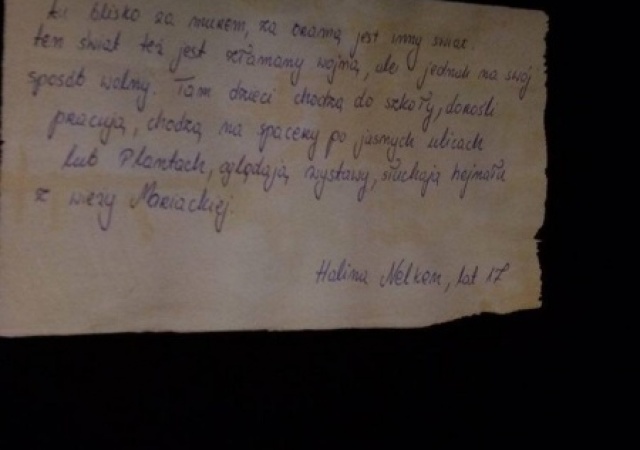 tu blisko za murem, za bramą jest inny świat.
ten świat też jest złamany wojną, ale jednak na swój
sposób wolny. Tam dzieci chodzą do szkoły, dorośli
pracują, chodzą na spacery po jasnych ulicach
lub Plantach, oglądają wystawy, słuchają hejnału
z wieży Mariackiej.
Halina Nelken, lat 17